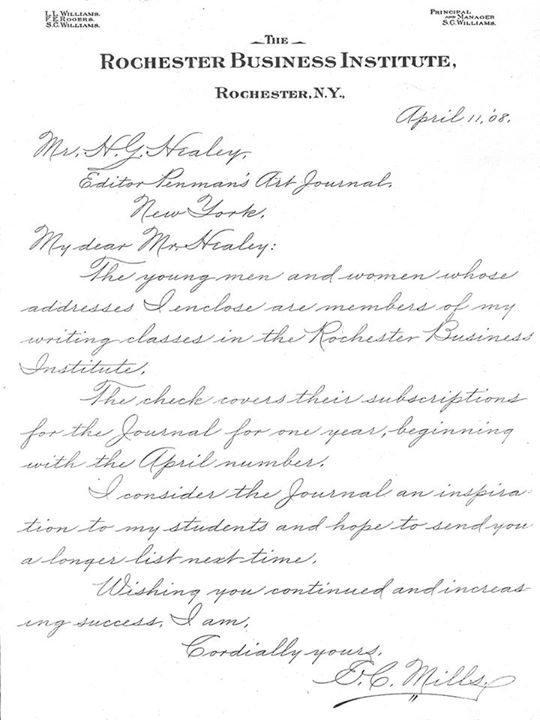 L.L. WILLIAMS.
F.E. ROGERS.
S.C. WILLIAMS.
PRINCIPAL
AND MANAGER
S.C. WILLIAMS.
THE
ROCHESTER BUSINESS INSTITUTE,
ROCHESTER, N.Y.,
April 11,'08.
Mr. H. G. Healey,
Editor Penman's Art Journal,
New York.
My dear Mr. Healey:
The young men and women whose
addresses I enclose are members of my
writing classes in the Rochester Business
Institute.
The check covers their subscriptions
for the Journal for one year, beginning
with the April number.
I consider the Journal an inspira-
tion to my students and hope to send you
a longer list next time.
Wishing you continued and increas-
ing success, I am,
Cordially yours,
E. C. Mills.